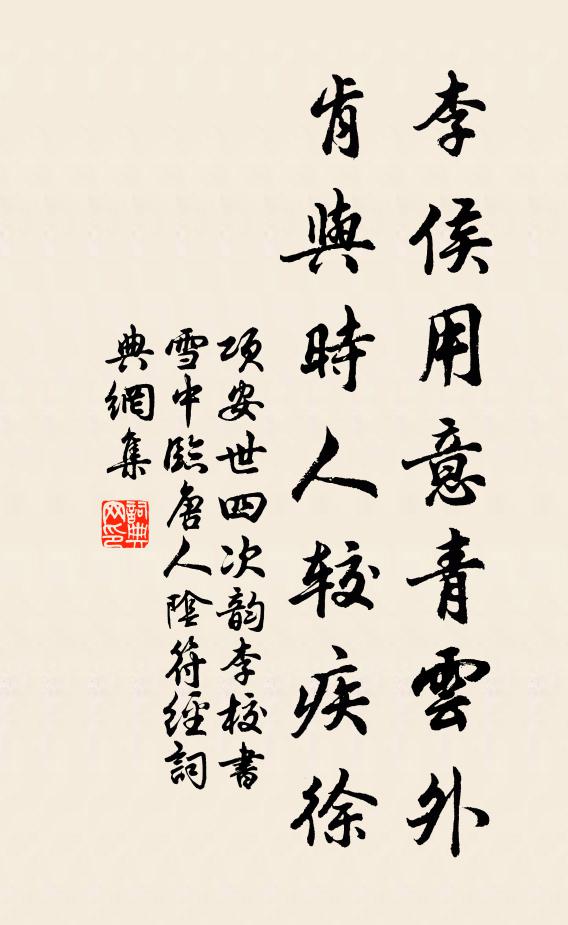 李侯用意青雲外
肯與時人較疾徐
項安世四次韵李校書
雪中臨唐人陰符經詞
典網集
詞典網印